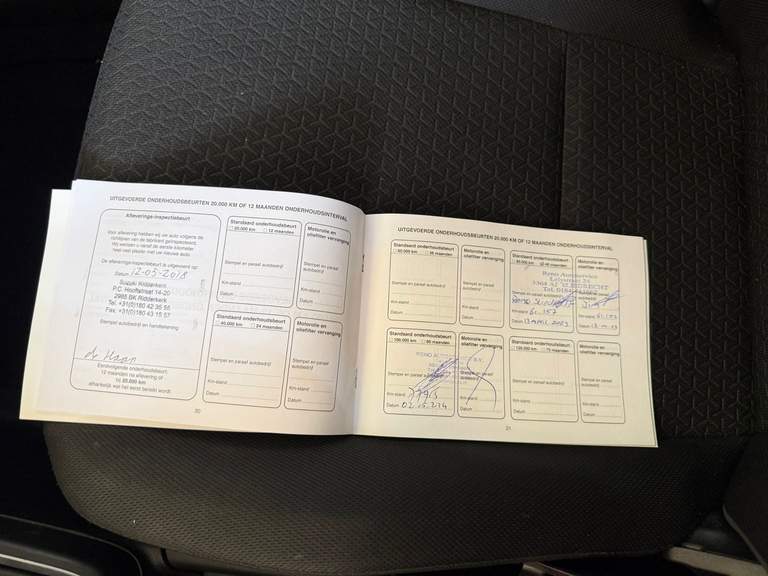 UITGEVOERDE ONDERHOUDSBEURTEN 20.000 KM OF 12 MAANDEN ONDERHOUDSINTERVAL
Afleverings-inspectiebeurt
Voor aflevering hebben wij uw auto volgens de
richtlijnen van de fabrikant geïnspecteerd.
Wij wensen u vanaf de eerste kilometer
heel veel plezier met uw nieuwe auto.
De afleverings-inspectiebeurt is uitgevoerd op:
Datum 12-05-2018
Suzuki Ridderkerk
P.C. Hooftstraat 14-20
2985 BK Ridderkerk
Tel. +31(0)180 42 35 55
Fax. +31(0)180 43 15 57
Stempel autobedrijf en handtekening
de Haan
Eerstvolgende onderhoudsbeurt:
12 maanden na aflevering of
bij 20.000 km
afhankelijk wat het eerst bereikt wordt.
Standaard onderhoudsbeurt
20.000 km 12 maanden
Stempel en paraaf autobedrijf
Km-stand
Datum
Motorolie en
oliefilter vervanging
Stempel en paraaf
autobedrijf
Km-stand
Datum
Standaard onderhoudsbeurt
40.000 km 24 maanden
Stempel en paraaf autobedrijf
Km-stand
Datum
Motorolie en
oliefilter vervanging
Stempel en paraaf
autobedrijf
Km-stand
Datum
20
UITGEVOERDE ONDERHOUDSBEURTEN 20.000 KM OF 12 MAANDEN ONDERHOUDSINTERVAL
Standaard onderhoudsbeurt
60.000 km 36 maanden
Stempel en paraaf autobedrijf
Km-stand
Datum
Motorolie en
oliefilter vervanging
Stempel en paraaf
autobedrijf
Km-stand
Datum
Standaard onderhoudsbeurt
80.000 km 48 maanden
Stempel en paraaf autobedrijf
Km-stand 61.157
Datum
Motorolie en
oliefilter vervanging
Stempel en paraaf
autobedrijf
Km-stand
Datum
Standaard onderhoudsbeurt
100.000 km 60 maanden
Stempel en paraaf autobedrijf
Km-stand
Datum
Motorolie en
oliefilter vervanging
Stempel en paraaf
autobedrijf
Km-stand
Datum
Standaard onderhoudsbeurt
120.000 km 72 maanden
Stempel en paraaf autobedrijf
Km-stand
Datum
Motorolie en
oliefilter vervanging
Stempel en paraaf
autobedrijf
Km-stand
Datum
21